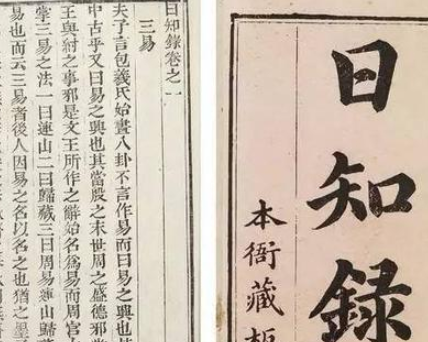 日知錄
本衙藏板
日知錄卷之一
三易
夫子言包羲氏始畫八卦不言作易而曰易之興也其
中古乎又曰易之興也其當殷之末世周之盛德邪
王與紂之事邪是文王所作之辭始名爲易而周官大
掌三易之法一曰連山二曰歸藏三曰周易連山歸藏
易也而云三易者後人因易之名以名之也猶之墨